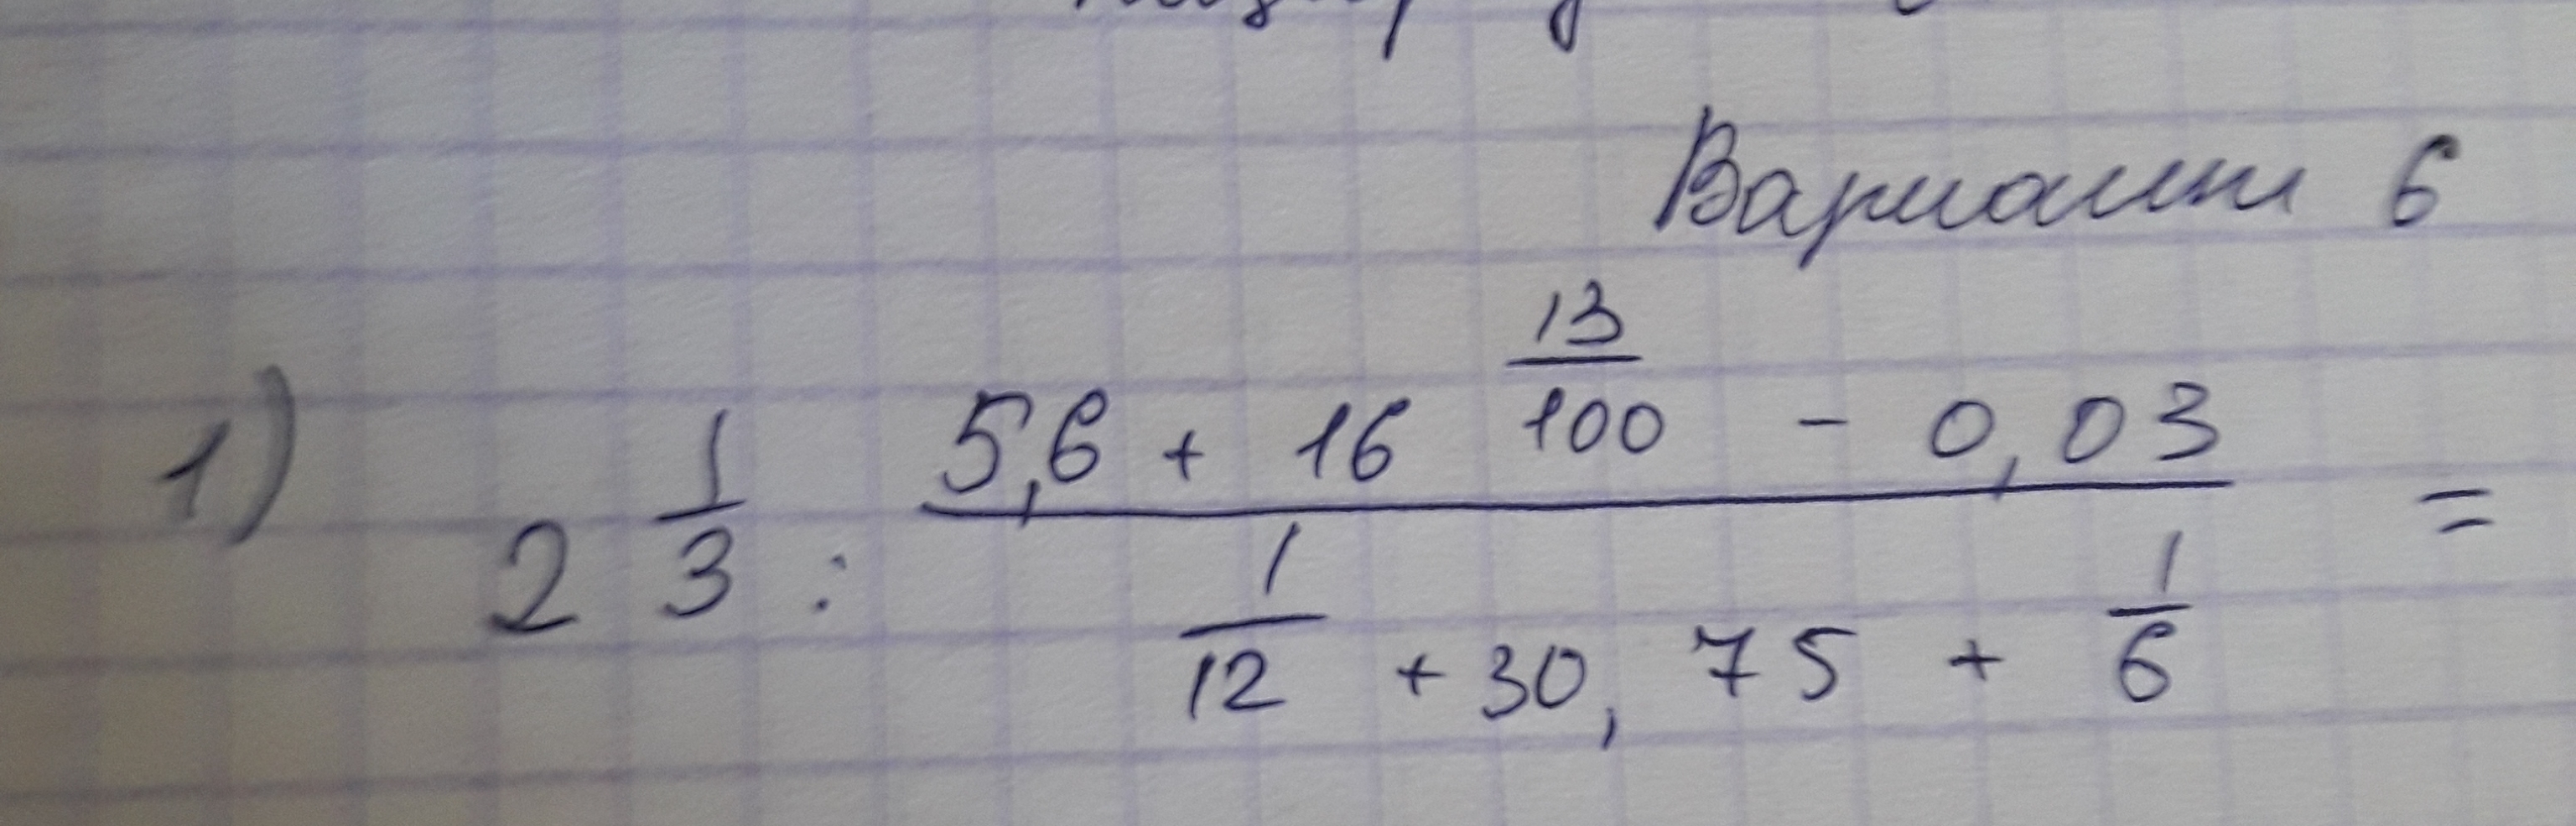 Вариант 6
1) 2 1/3 : (5,6 + 16 13/100 - 0,03) / (1/12 + 30,75 + 1/6) =